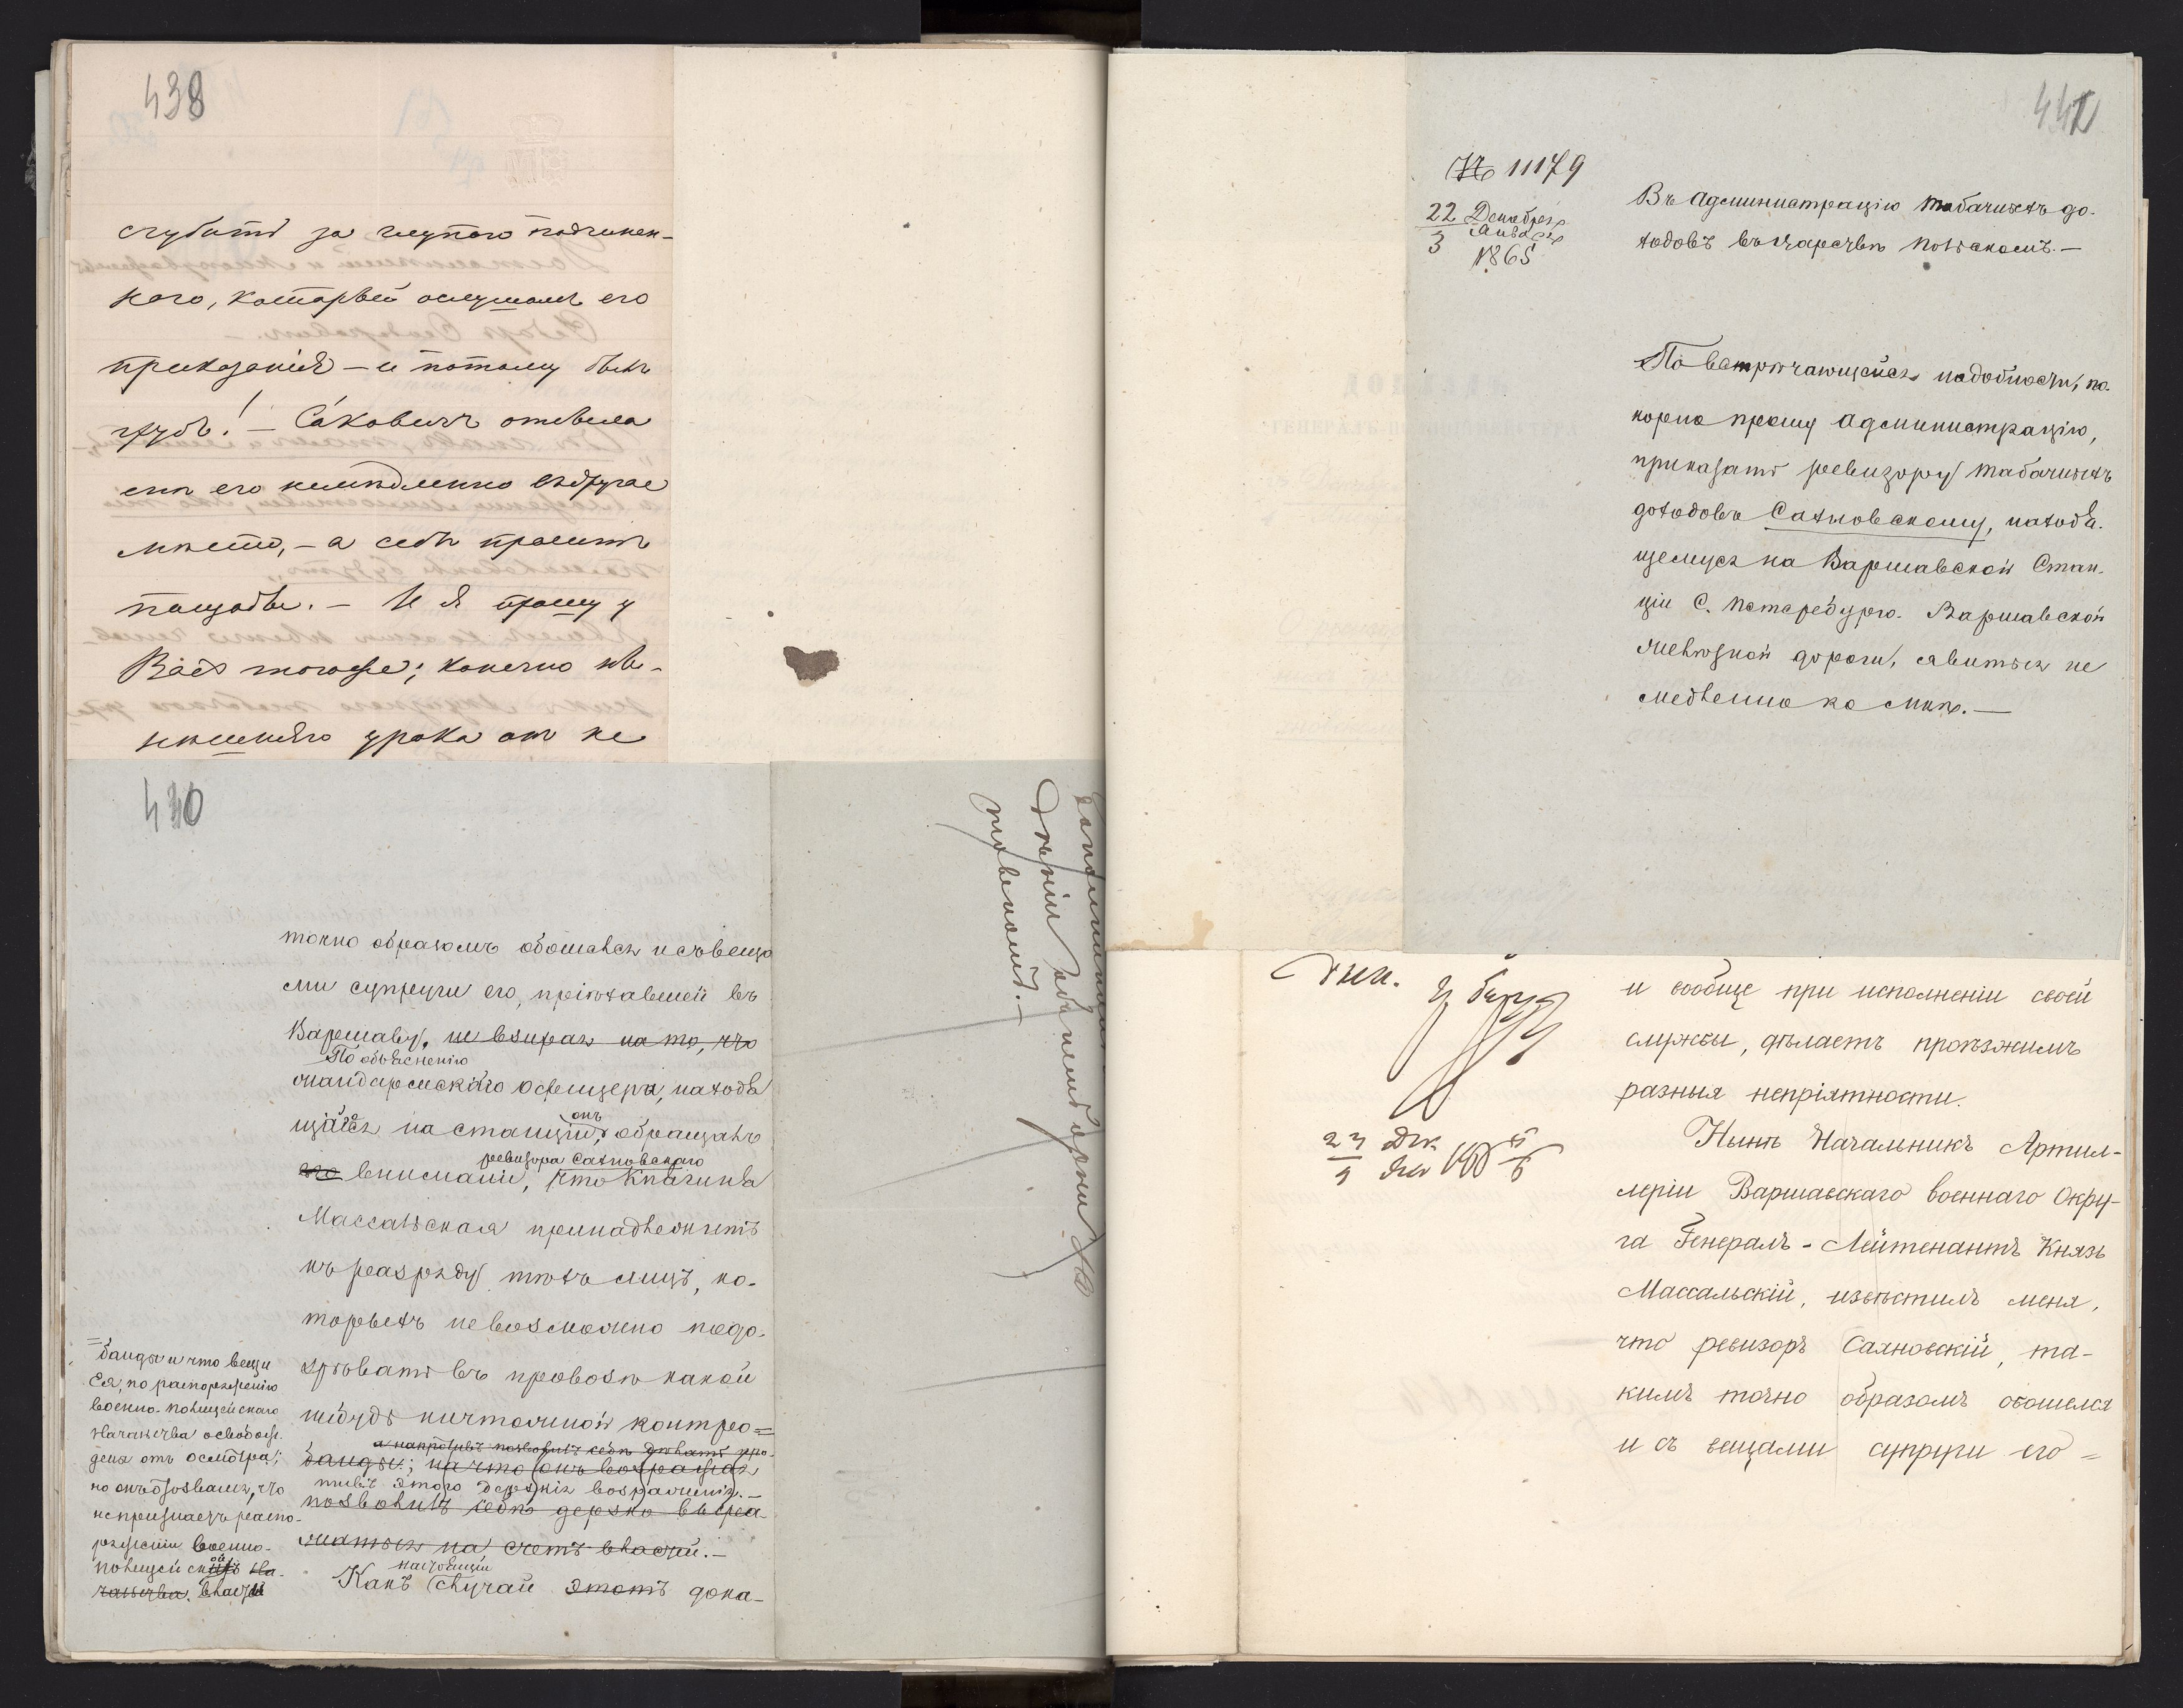 438
сгубить за глупого подчинен-
ного, который ослушался его
приказанія – и потому былъ
грубъ! – Саковичъ
его немедленно въ другое
мѣсто, – а себѣ проситъ
пощады. – И я прошу у
Васъ того же; конечно ны-
нѣшняго урока онъ не
430
точно образомъ обошелся и съ веща
ми супруги его, пріѣхавшей въ
Варшаву, не взирая на то, что
По объясненію
жандармскаго офицера, находя
щійся на станціи, обращалъ
онъ
ревизора Сахновскаго
его вниманіе, что Княгиня
Массальская принадлежитъ
къ разряду тѣхъ лицъ, ко-
торыхъ невозможно подо-
зрѣвать въ провозѣ какой
нибудь ничтожной контра=
а напротивъ позволилъ себѣ дѣлать про-
банды; на что онъ возражая
тивъ этого дерзкія возраженія. –
позволилъ себѣ дерзко выра-
жаться на счетъ власти. –
настоящій
Какъ случай этотъ дока-
=банды и что вещи
Ея, по распоряженію
военно-полицейскаго
Начальства освобож-
дены отъ осмотра;
но онъ отозвался, что
не признаетъ распо-
ряженіи военно-
полицейской На-
чальства. власти
дѣлъ
441
№ 11179
22 Декабря
3 Января
1865
Въ Администрацію табачныхъ до-
ходовъ въ Царствѣ Польскомъ. –
По встрѣчающейся надобности, по-
корно прошу Администрацію,
приказать ревизору табачныхъ
доходовъ Сахновскому, находя-
щемуся на Варшавской Стан-
ціи С. Петербурго-Варшавской
желѣзной дороги, явиться не
медленно ко мнѣ. –
и вообще при исполненіи своей
службы, дѣлаетъ проѣзжимъ
разныя непріятности.
Нынѣ Начальникъ Артил-
леріи Варшавскаго военнаго Окру-
га Генералъ-Лейтенантъ Князь
Массальскій, извѣстилъ меня,
что ревизоръ Сахновскій, та-
кимъ точно образомъ обошелся
и съ вещами супруги его =